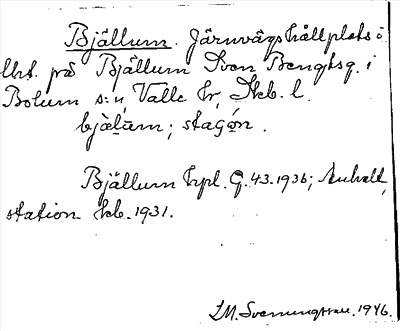 Bjällum. Järnvägshållplats å
Uht. på Bjällum Sven Bengtsg. i
Bolum s:n, Valle hr, Skb. l.
bjälum; stagón.
Bjällum hpl. G. 43. 1936; Anhalt,
station kb. 1931.
I.M. Svenungsson. 1946.